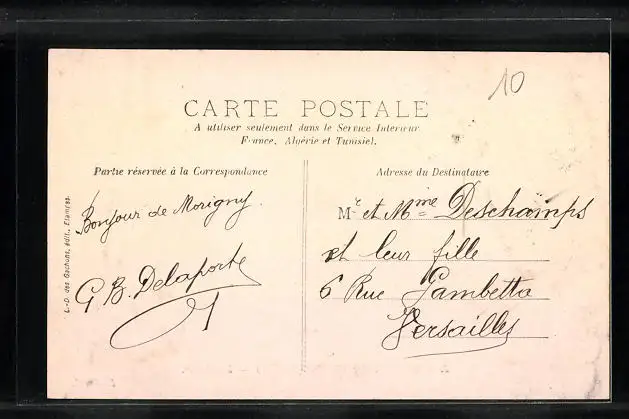 10
CARTE POSTALE
A utiliser seulement dans le Service Interieur
France, Algérie et Tunisie).
Partie réservée à la Correspondance
Adresse du Destinataire
Bonjour de Morigny.
G B. Delaporte
Mr et Mme Deschamps
et leur fille
6 Rue Gambetta
Versailles
L.-D. des Gachons, édit., Etampes.